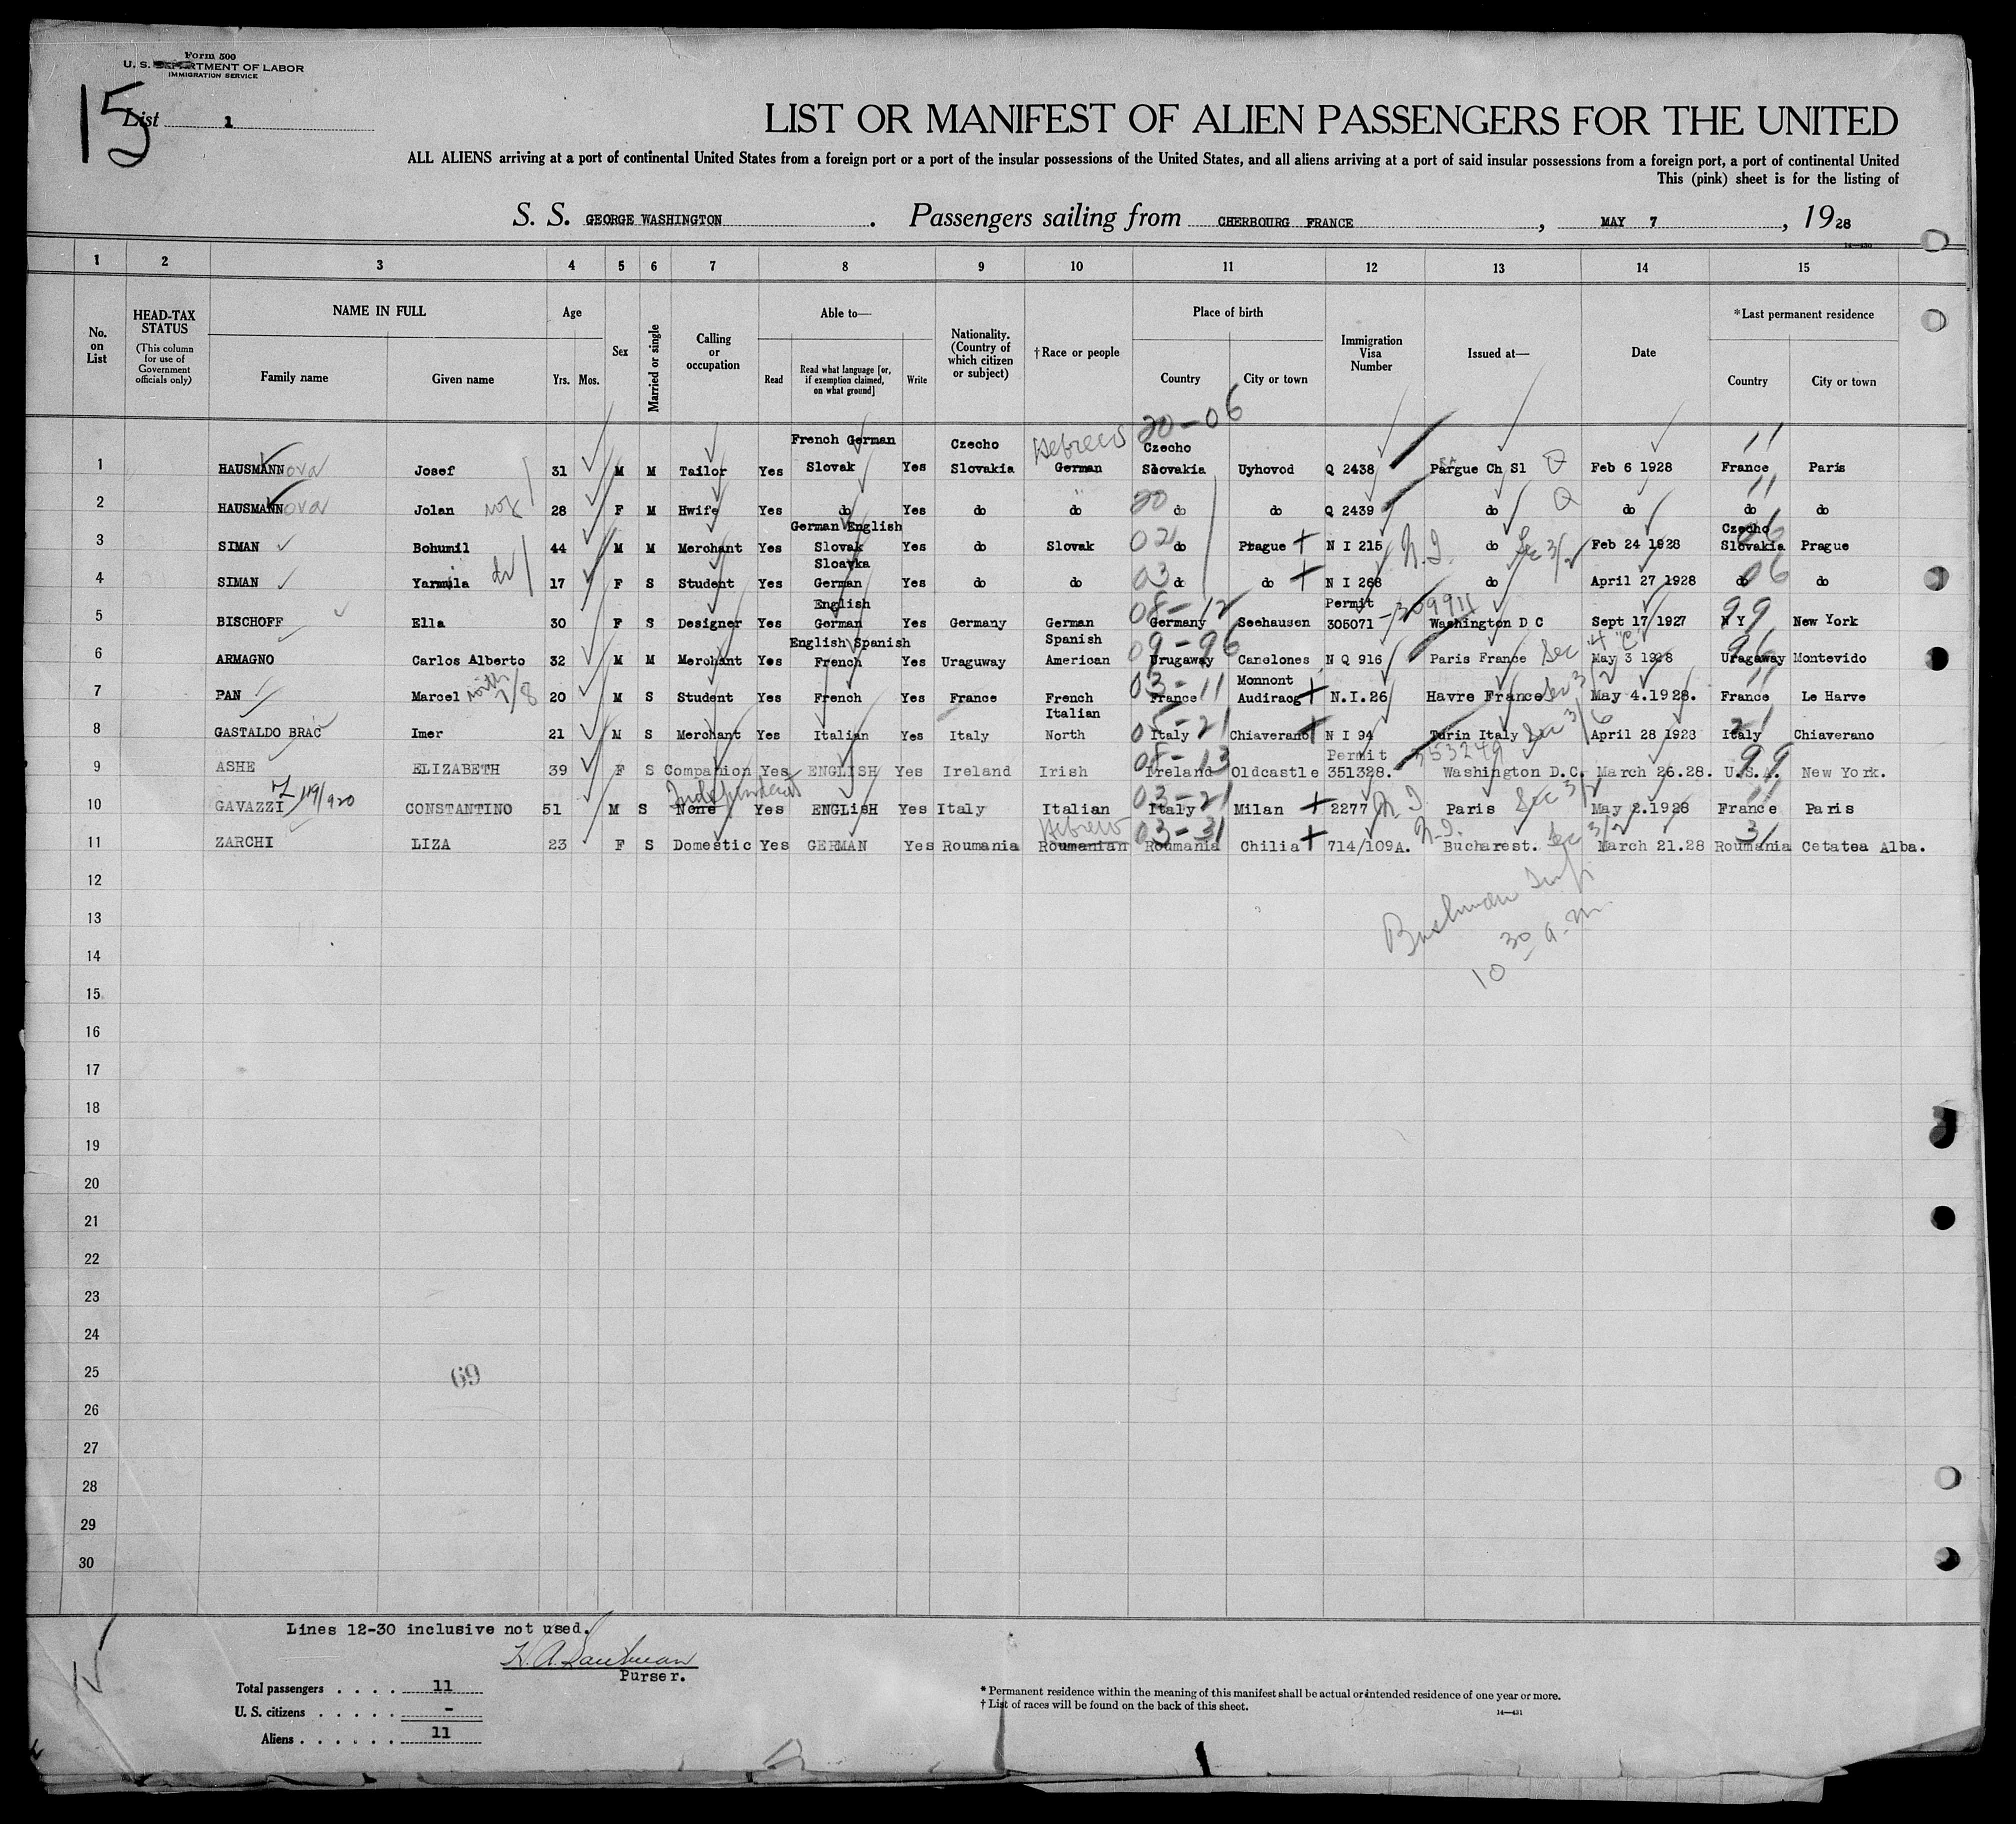 Form 500
U. S. DEPARTMENT OF LABOR
IMMIGRATION SERVICE
15
List 1
LIST OR MANIFEST OF ALIEN PASSENGERS FOR THE UNITED
ALL ALIENS arriving at a port of continental United States from a foreign port or a port of the insular possessions of the United States, and all aliens arriving at a port of said insular possessions from a foreign port, a port of continental United
This (pink) sheet is for the listing of
S. S. GEORGE WASHINGTON . Passengers sailing from CHERBOURG FRANCE , MAY 7 , 1928
14—430
1 2 3 4 5 6 7 8 9 10 11 12 13 14 15
No. on List
HEAD-TAX STATUS (This column for use of Government officials only)
NAME IN FULL
Family name Given name
Age
Yrs. Mos.
Sex
Married or single
Calling or occupation
Able to—
Read Read what language [or, if exemption claimed, on what ground] Write
Nationality. (Country of which citizen or subject)
†Race or people
Place of birth
Country City or town
Immigration Visa Number
Issued at—
Date
*Last permanent residence
Country City or town
20-06
French German Czecho Hebrew Czecho 11
1 HAUSMANN ova Josef 31 M M Tailor Yes Slovak Yes Slovakia German Slovakia Uyhovod Q 2438 Pargue Ch Sl Q Feb 6 1928 France Paris
2 HAUSMANN ova Jolan 28 F M Hwife Yes do Yes do do 20 do do Q 2439 do Q do 11 do do
German English Czecho
3 SIMAN Bohumil 44 M M Merchant Yes Slovak Yes do Slovak 02 do Prague N I 215 N.I. do Sec 3/2 Feb 24 1928 06 Slovakia Prague
Sloavka
4 SIMAN Yarmila 17 F S Student Yes German Yes do do 03 do do N I 268 do April 27 1928 06 do do
English 08-12 Permit 309911 99
5 BISCHOFF Ella 30 F S Designer Yes German Yes Germany German Germany Seehausen 305071 Washington D C Sept 17 1927 N Y New York
English Spanish Spanish 09-96 Sec 4 "C" 96
6 ARMAGNO Carlos Alberto 32 M M Merchant Yes French Yes Uraguway American Urugaway Canolones N Q 916 Paris France May 3 1928 Uragaway Montevido
03-11 Monnont Sec 3/2 11
7 PAN Marcel 7/8 20 M S Student Yes French Yes France French France Audiracq N.I.26 Havre France May 4.1928. France Le Harve
Italian Sec 3/6
8 GASTALDO BRAC Imer 21 M S Merchant Yes Italian Yes Italy North 05-21 Italy Chiaverano N I 94 Turin Italy April 28 1928 21 Italy Chiaverano
08-13 Permit 353249 99
9 ASHE ELIZABETH 39 F S Companion Yes ENGLISH Yes Ireland Irish Ireland Oldcastle 351328. Washington D.C. March 26.28. U.S.A. New York.
119/920 Independent 03-21 11
10 GAVAZZI CONSTANTINO 51 M S None Yes ENGLISH Yes Italy Italian Italy Milan 2277 N I Paris Sec 3/2 May 2.1928 France Paris
Hebrew 03-31 N.I. Sec 3/2 31
11 ZARCHI LIZA 23 F S Domestic Yes GERMAN Yes Roumania Roumanian Roumania Chilia 714/109A. Bucharest. March 21.28 Roumania Cetatea Alba.
12
13
10 30 a.m.
14
15
16
17
18
19
20
21
22
23
24
25
69
26
27
28
29
30
Lines 12-30 inclusive not used.
Purser.
Total passengers . . . . 11
U. S. citizens . . . . . -
Aliens . . . . . . 11
* Permanent residence within the meaning of this manifest shall be actual or intended residence of one year or more.
† List of races will be found on the back of this sheet.
14—431